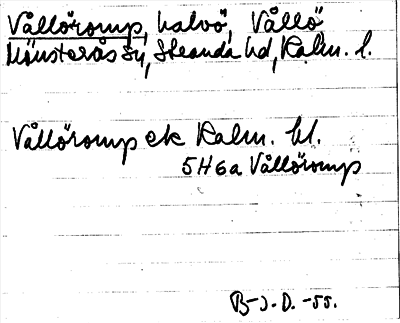 Vållöromp, halvö, Vållö
Mönsterås sn, Stranda hd, Kalm. l.
Vållöromp ek Kalm. bl.
5H6a Vållöromp
B-J.D. -55.